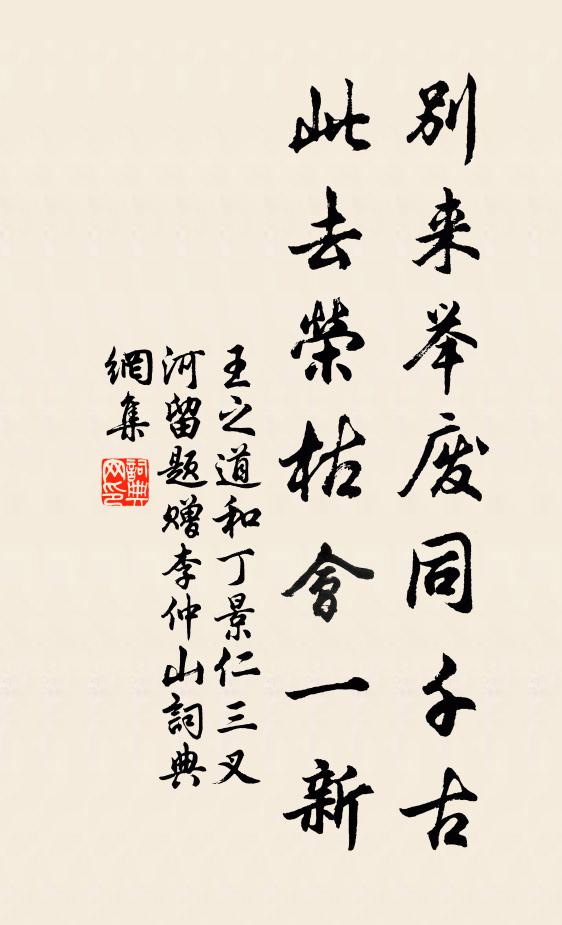 別来举废同千古
此去榮枯會一新
王之道和丁景仁三叉
河留题赠李仲山詞典
網集
詞典
网印